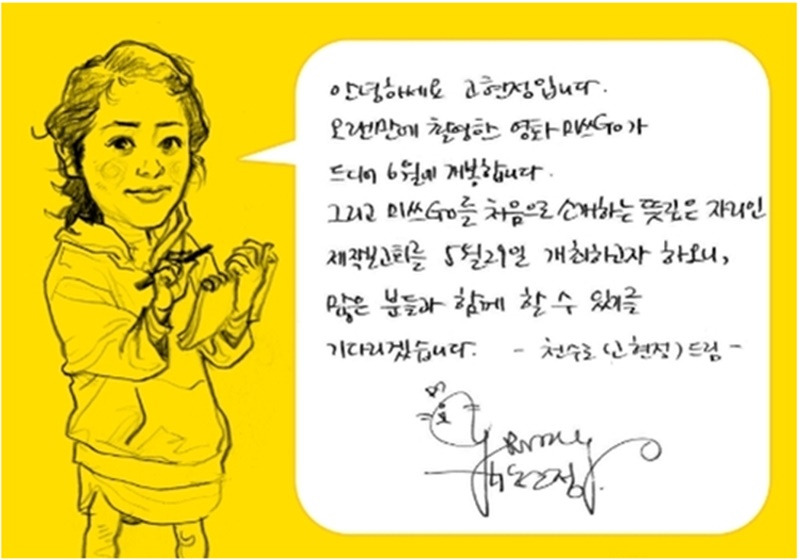 안녕하세요 고현정입니다.
오랜만에 촬영한 영화 미쓰Go가
드디어 6월에 개봉합니다.
그리고 미쓰Go를 처음으로 소개하는 뜻깊은 자리인
제작보고회를 5월29일 개최하고자 하오니,
많은 분들과 함께 할 수 있기를
기다리겠습니다. - 천수로 (고현정) 드림 -